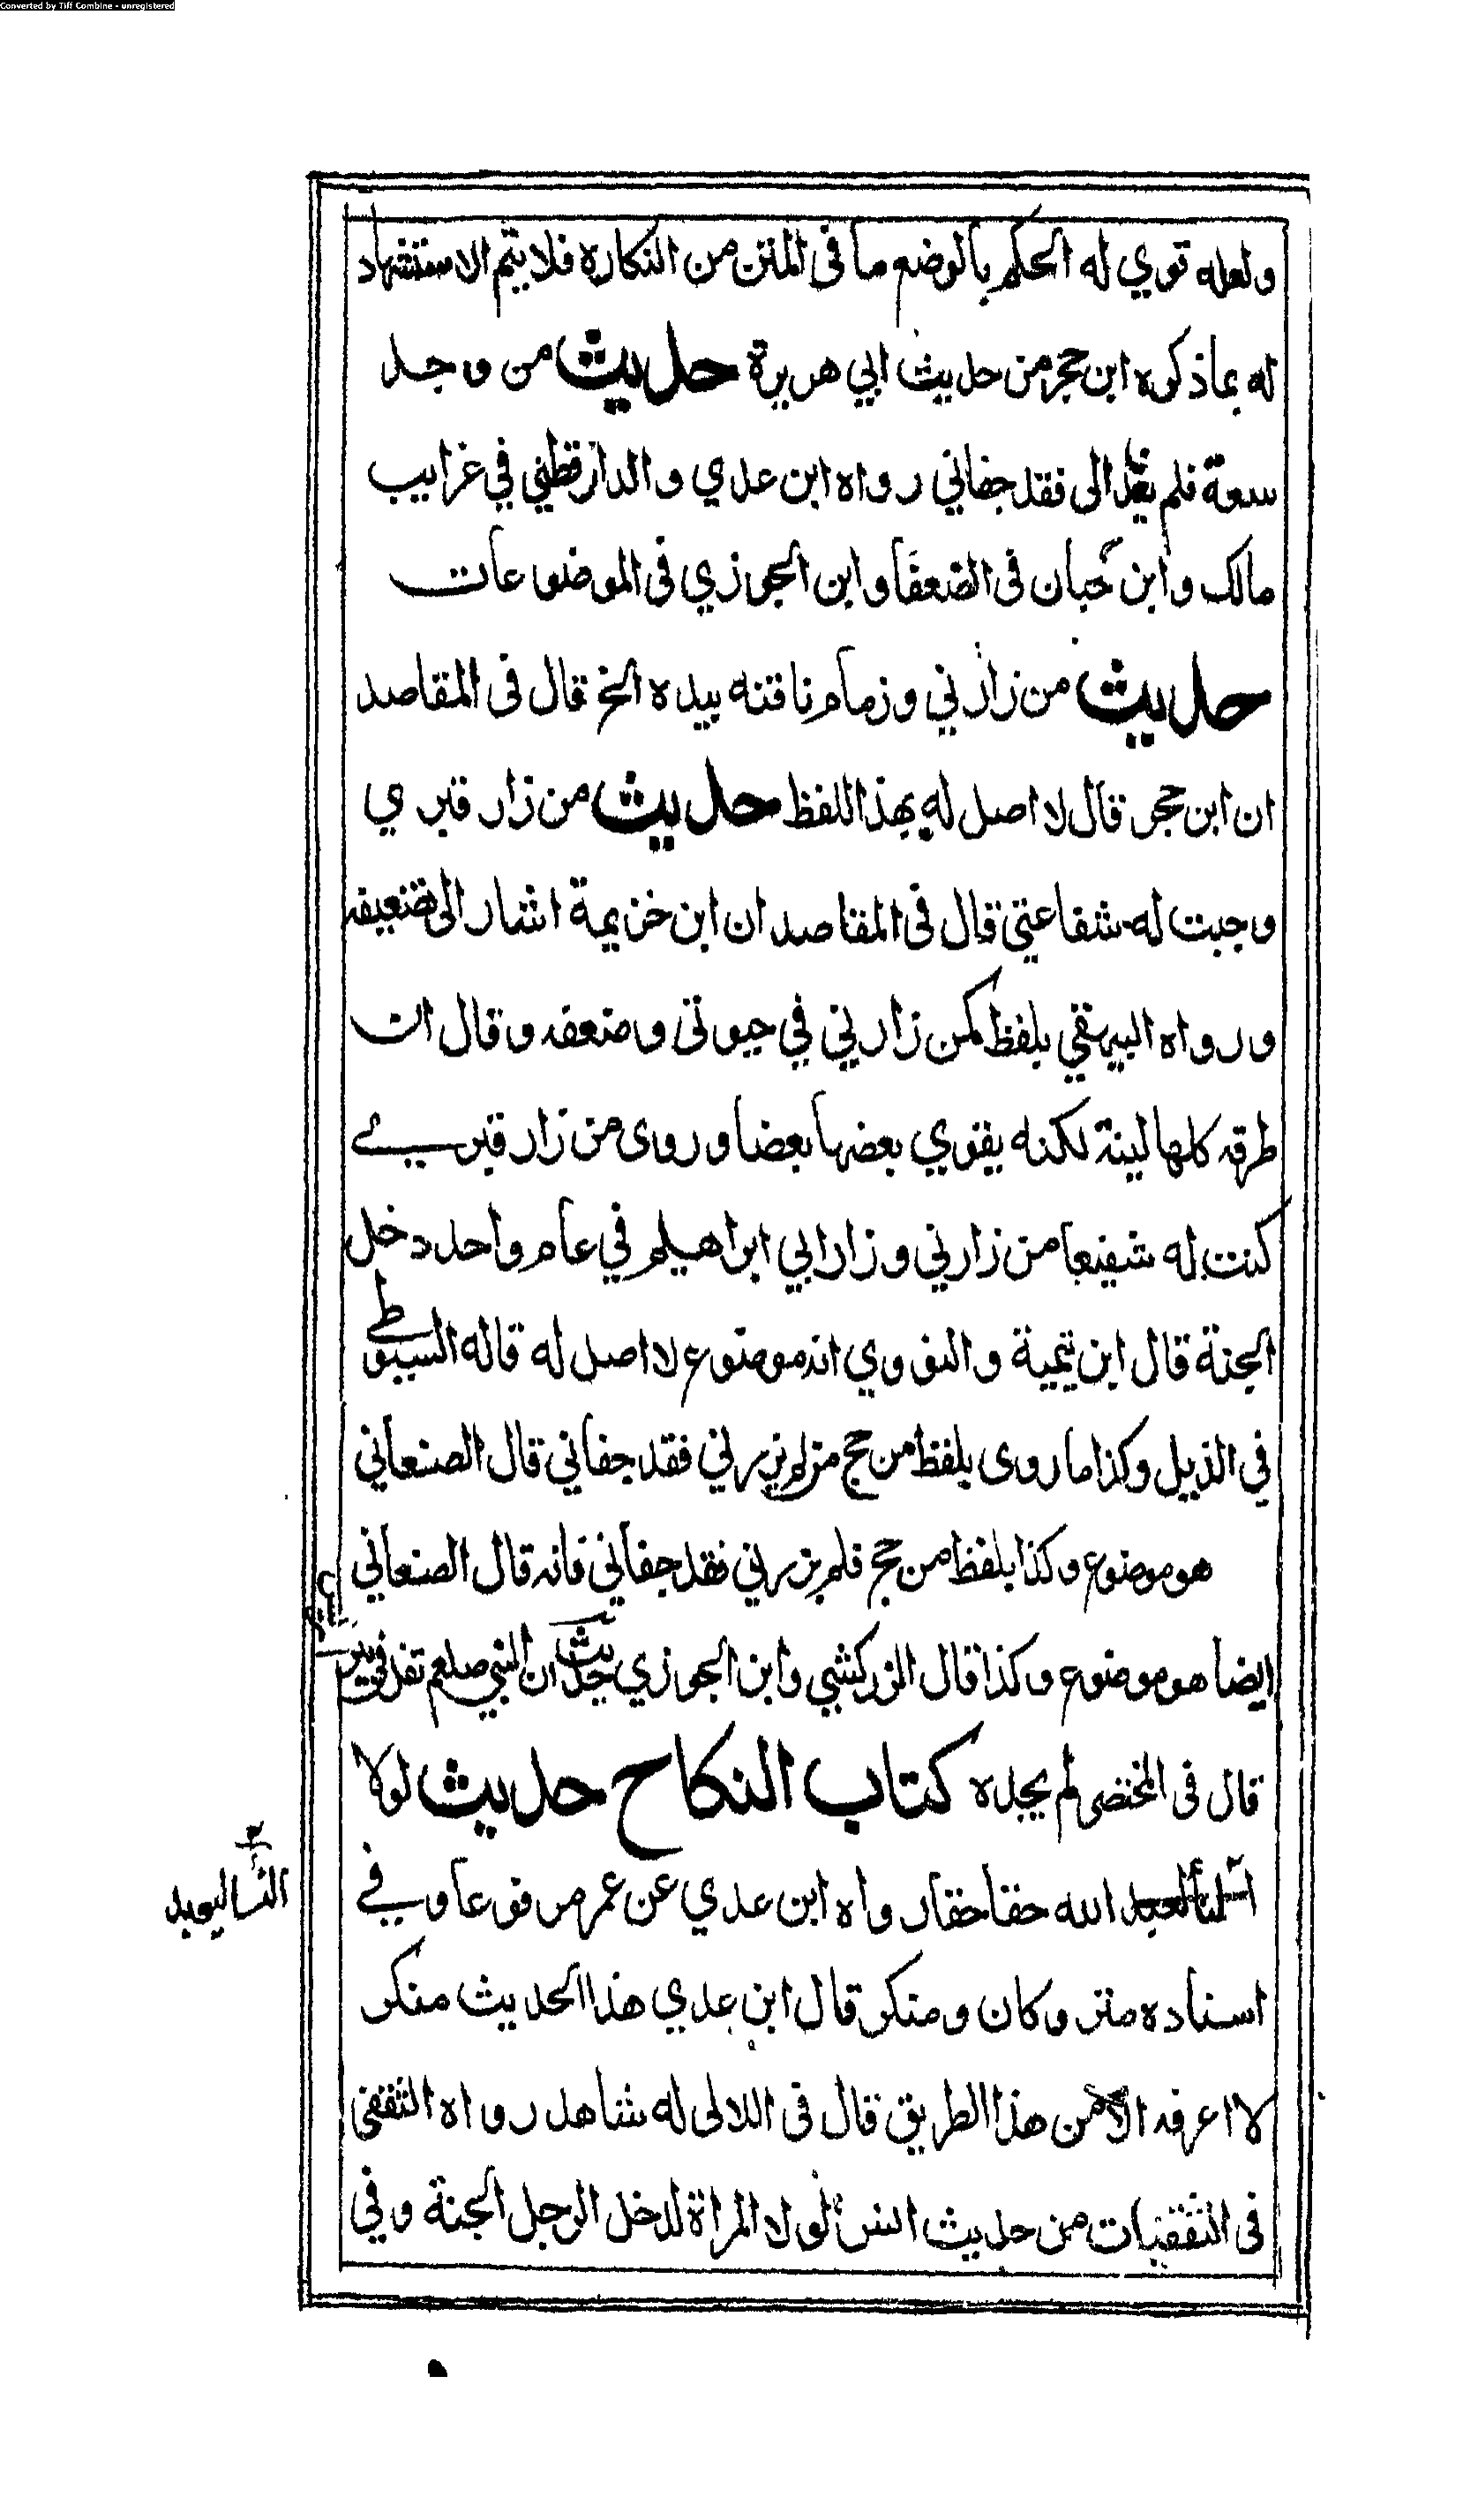 Converted by Tiff Combine - unregistered
ولعله قوي له الحكم بالوضع ما في المتن من النكارة فلا يتم الاستشهاد
له بما ذكره ابن حجر من حديث ابي هريرة حديث من وجد
سعة فلم يفد الى فقد جفاني رواه ابن عدي والدارقطني في غرايب
مالك وابن حبان في الضعفا وابن الجوزي في الموضوعات
حديث من زارني وزمام ناقته بيده الخ قال في المقاصد
ان ابن حجر قال لا اصل له بهذا اللفظ حديث من زار قبري
وجبت له شفاعتي قال في المقاصد ان ابن خزيمة اشار الى تضعيفه
ورواه البيهقي بلفظ كمن زارني في حيوتى وضعفه وقال ان
طرقه كلها لينة لكنه يقوي بعضها بعضا وروى من زار قبري
كنت له شفيعا من زارني وزار ابي ابراهيم في عام واحد دخل
الجنة قال ابن تيمية والنووي انه موضوع لا اصل له قاله السيوطي
في الذيل وكذا ما روى بلفظ من حج ولم يزرني فقد جفاني قال الصنعاني
هو موضوع وكذا بلفظ من حج فلم يزرني فقد جفاني فانه قال الصنعاني
ايضا هو موضوع وكذا قال الزركشي وابن الجوزي حديث ان النبي صلعم تفل في بير
قال في المختصر لم يجده كتاب النكاح حديث لولا
الله حقا حقا رواه ابن عدي عن عمر مرفوعا وفي
النسا ليعبد
اسناده متروكان ومنكر قال ابن عدي هذا الحديث منكر
لا اعرفه الا من هذا الطريق قال في اللالى له شاهد رواه الثقفي
في الثقفيات من حديث انس لولا المراة لدخل الرجل الجنة وفي